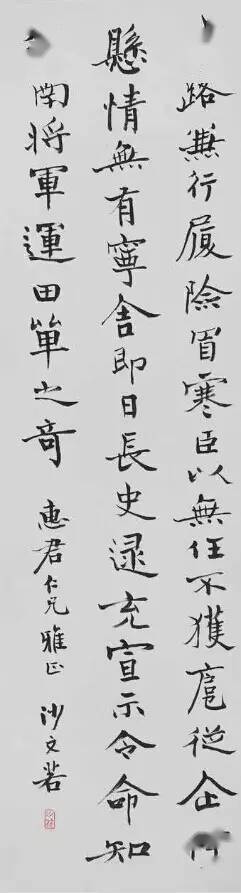 路兼行履險冒寒臣以無任不獲扈從企
懸情無有寧舍即日長史逯充宣示令命知
南將軍運田單之奇 惠君仁兄雅正 沙文若